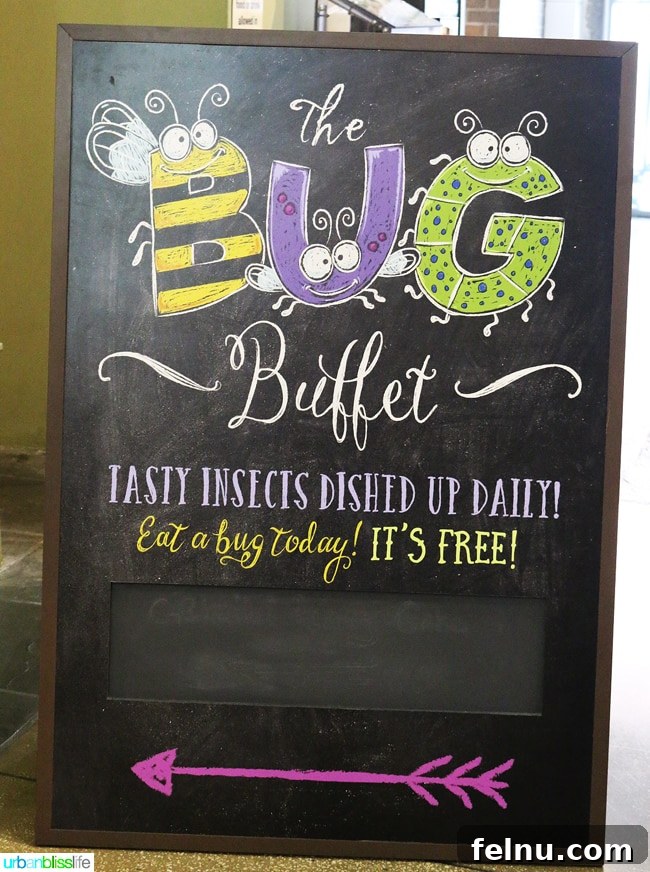 The
BUG
Buffet
TASTY INSECTS DISHED UP DAILY!
Eat a bug today! IT'S FREE!
urbanblisslife
felnu.com